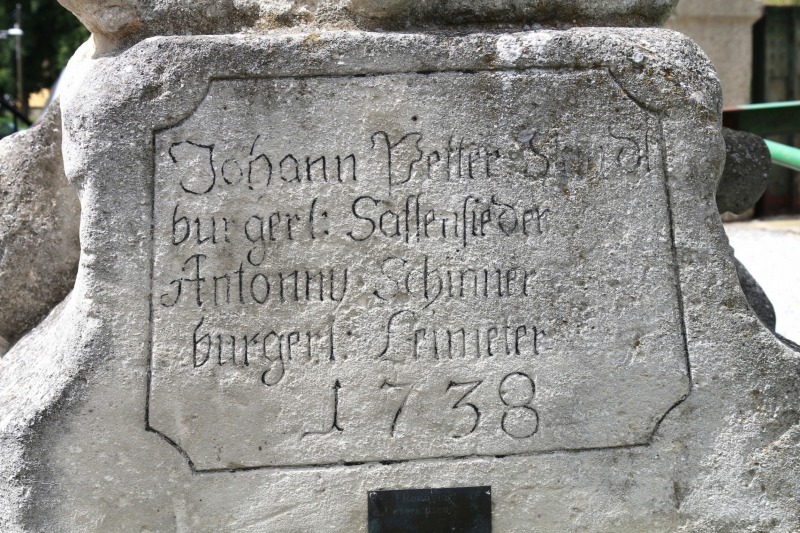 Johann Petter
burgerl: Saffensieder
Antonny Schinner
burgerl: Leimeter
1738